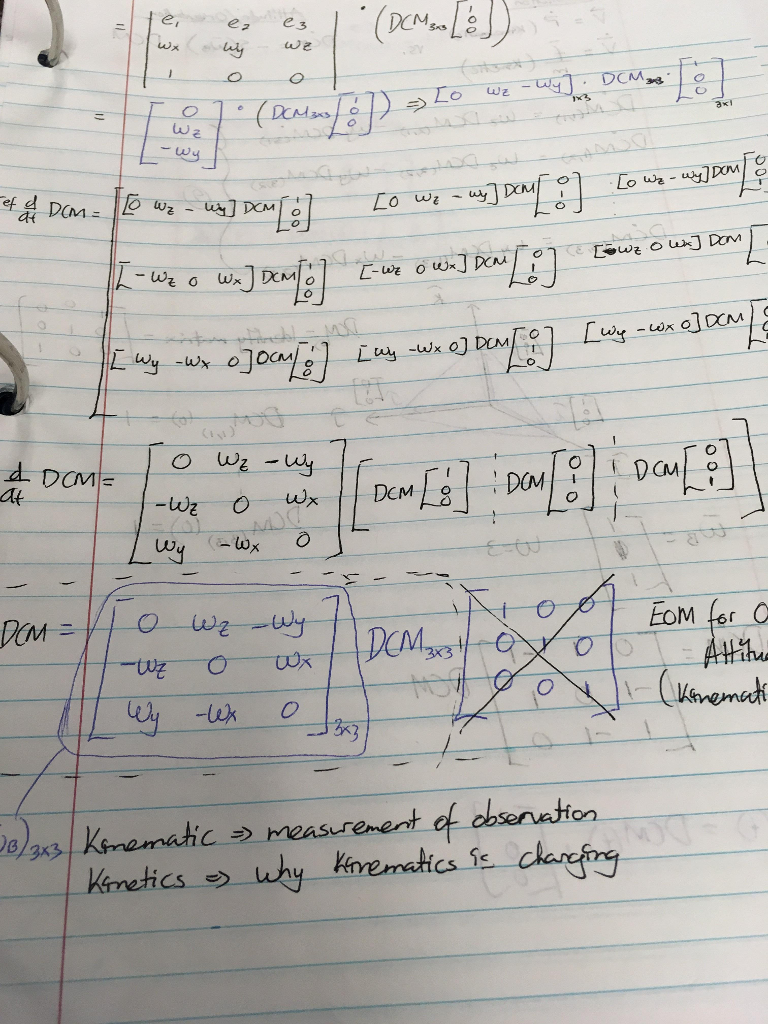 = | e₁ e₂ e₃ |
| ωx ωy ωz | · (DCM₃ₓ₃ [1 0 0])
| 1 0 0 |
= [0 ωz -ωy] · (DCM₃ₓ₃ [1 0 0]) ⇒ [0 ωz -ωy]₁ₓ₃ · DCM₃ₓ₃ · [1 0 0]₃ₓ₁
d/dt DCM = [0 ωz -ωy] DCM [1 0 0] [0 ωz -ωy] DCM [0 1 0] [0 ωz -ωy] DCM [0 0
[-ωz 0 ωx] DCM [1 0 0] [-ωz 0 ωx] DCM [0 1 0] [-ωz 0 ωx] DCM [
[ωy -ωx 0] DCM [1 0 0] [ωy -ωx 0] DCM [0 1 0] [ωy -ωx 0] DCM [0 0
d/dt DCM = [0 ωz -ωy [DCM [1 0 0] ¦ DCM [0 1 0] ¦ DCM [0 0 1]]
-ωz 0 ωx
ωy -ωx 0]
DCM = [0 ωz -ωy
-ωz 0 ωx
ωy -ωx 0]₃ₓ₃ DCM₃ₓ₃ [1 0 0
0 1 0
0 0 1]
EOM for
Attitu
(Kinemati
B)₃ₓ₃ Kinematic ⇒ measurement of observation
Kinetics ⇒ why kinematics is changing